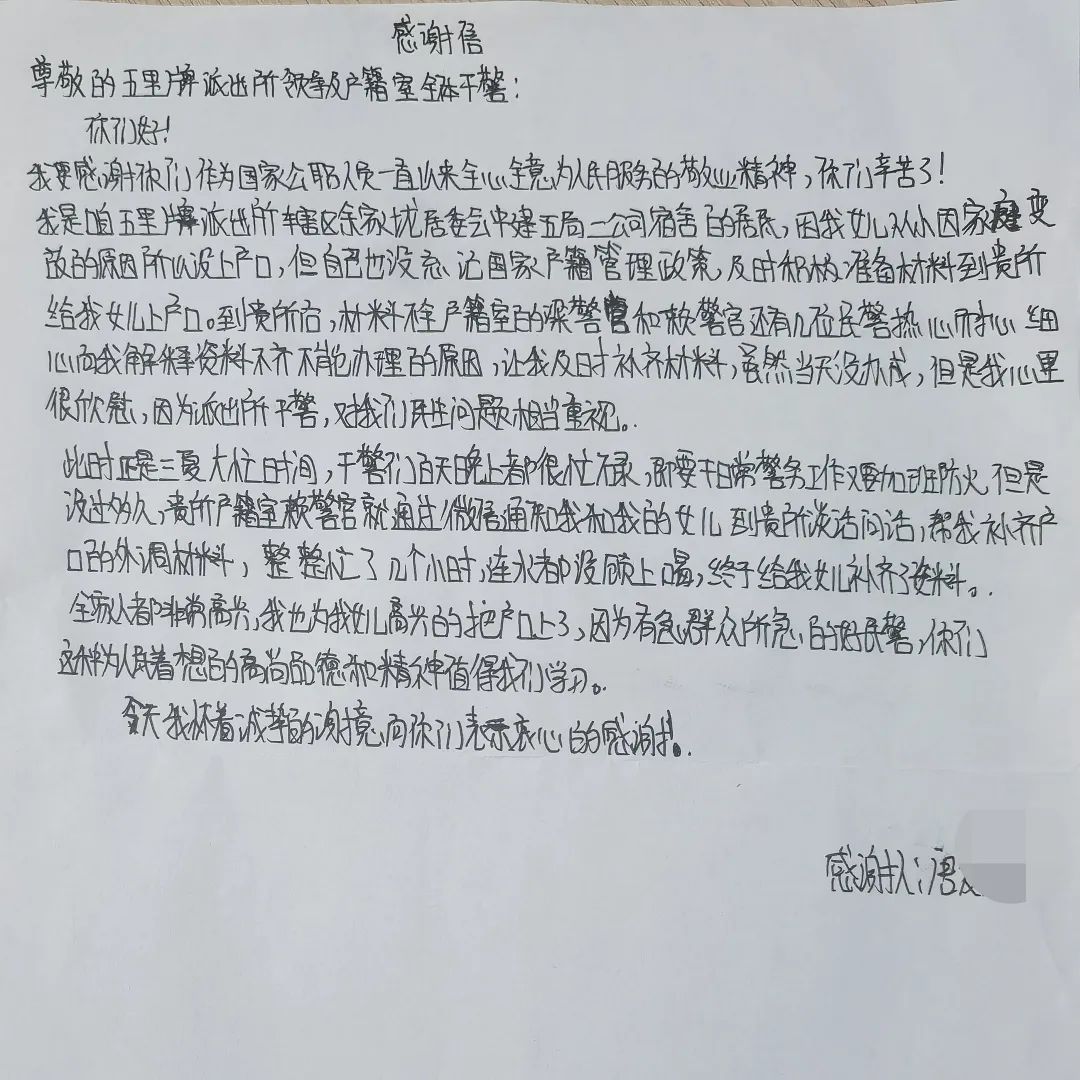 感谢信
尊敬的五里牌派出所领导及户籍室全体干警：
你们好！
我要感谢你们作为国家公职人员一直以来全心全意为人民服务的敬业精神，你们辛苦了！
我是咱五里牌派出所辖区余家垅居委会中建五局一公司宿舍的居民，因我女儿从小因家庭变
故的原因所以没上户口，但自己也没忘记国家户籍管理政策，及时积极准备材料到贵所
给我女儿上户口。到贵所后，材料不全户籍室的梁警官和赖警官还有几位民警热心耐心细
心向我解释资料不齐不能办理的原因，让我及时补齐材料，虽然当天没办成，但是我心里
很欣慰，因为派出所干警，对我们民生问题相当重视。
此时正是三夏大忙时间，干警们白天晚上都很忙碌，即要干日常警务工作又要加班防火，但是
没过多久，贵所户籍室赖警官就通过微信通知我和我的女儿到贵所谈话问话，帮我补齐户
口的外调材料，整整忙了几个小时，连水都没顾上喝，终于给我女儿补齐了资料。
全家人都非常高兴，我也为我女儿高兴的把户口上了，因为有急群众所急的好民警，你们
这种为人民着想的高尚品德和精神值得我们学习。
今天我怀着诚挚的谢意向你们表示衷心的感谢！
感谢人：唐